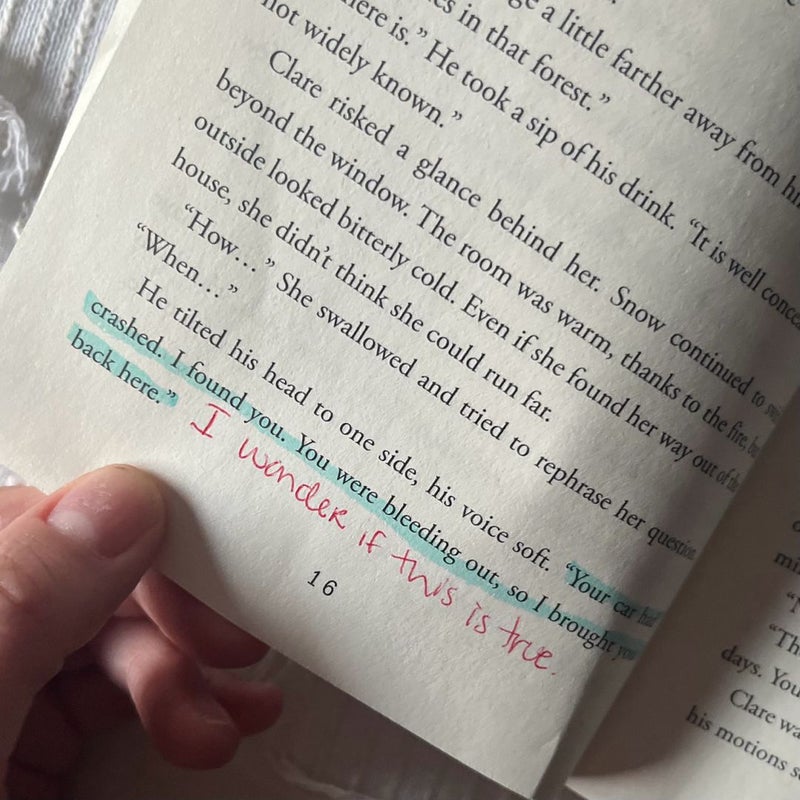 a little farther away from
in that forest."
here is." He took a sip of his drink. "It is well
not widely known."
Clare risked a glance behind her. Snow continued to
beyond the window. The room was warm, thanks to the fire,
outside looked bitterly cold. Even if she found her way out of the
house, she didn't think she could run far.
"How…" She swallowed and tried to rephrase her question
"When…"
He tilted his head to one side, his voice soft. "Your car had
crashed. I found you. You were bleeding out, so I brought you
back here."
I wonder if this is true.
16
"Th
days. You
Clare wa
his motions